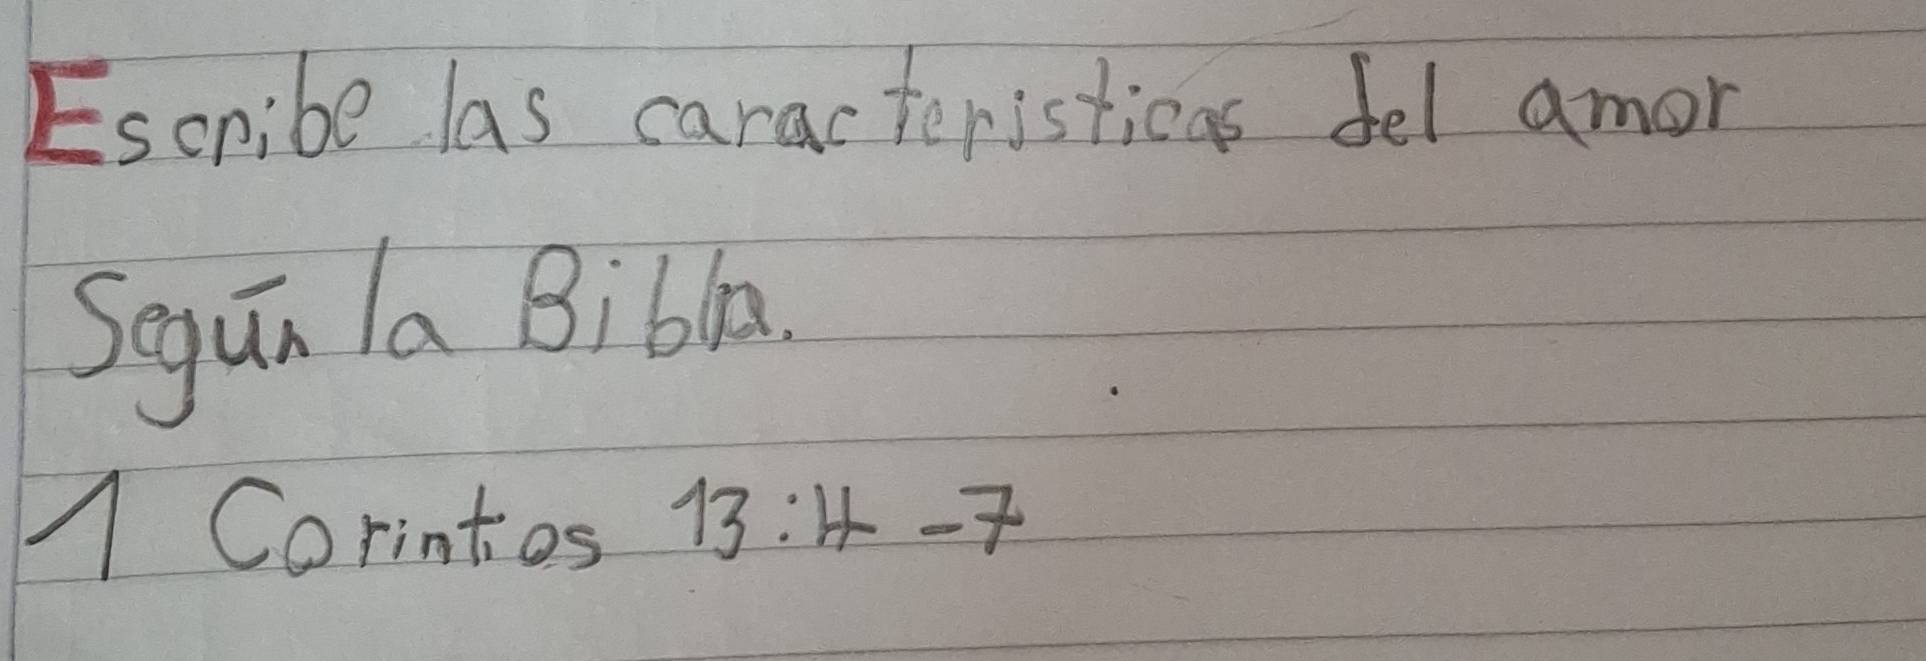 Escribe las caracteristicas del amor
Según la Biblia.
1 Corintios 13:4-7